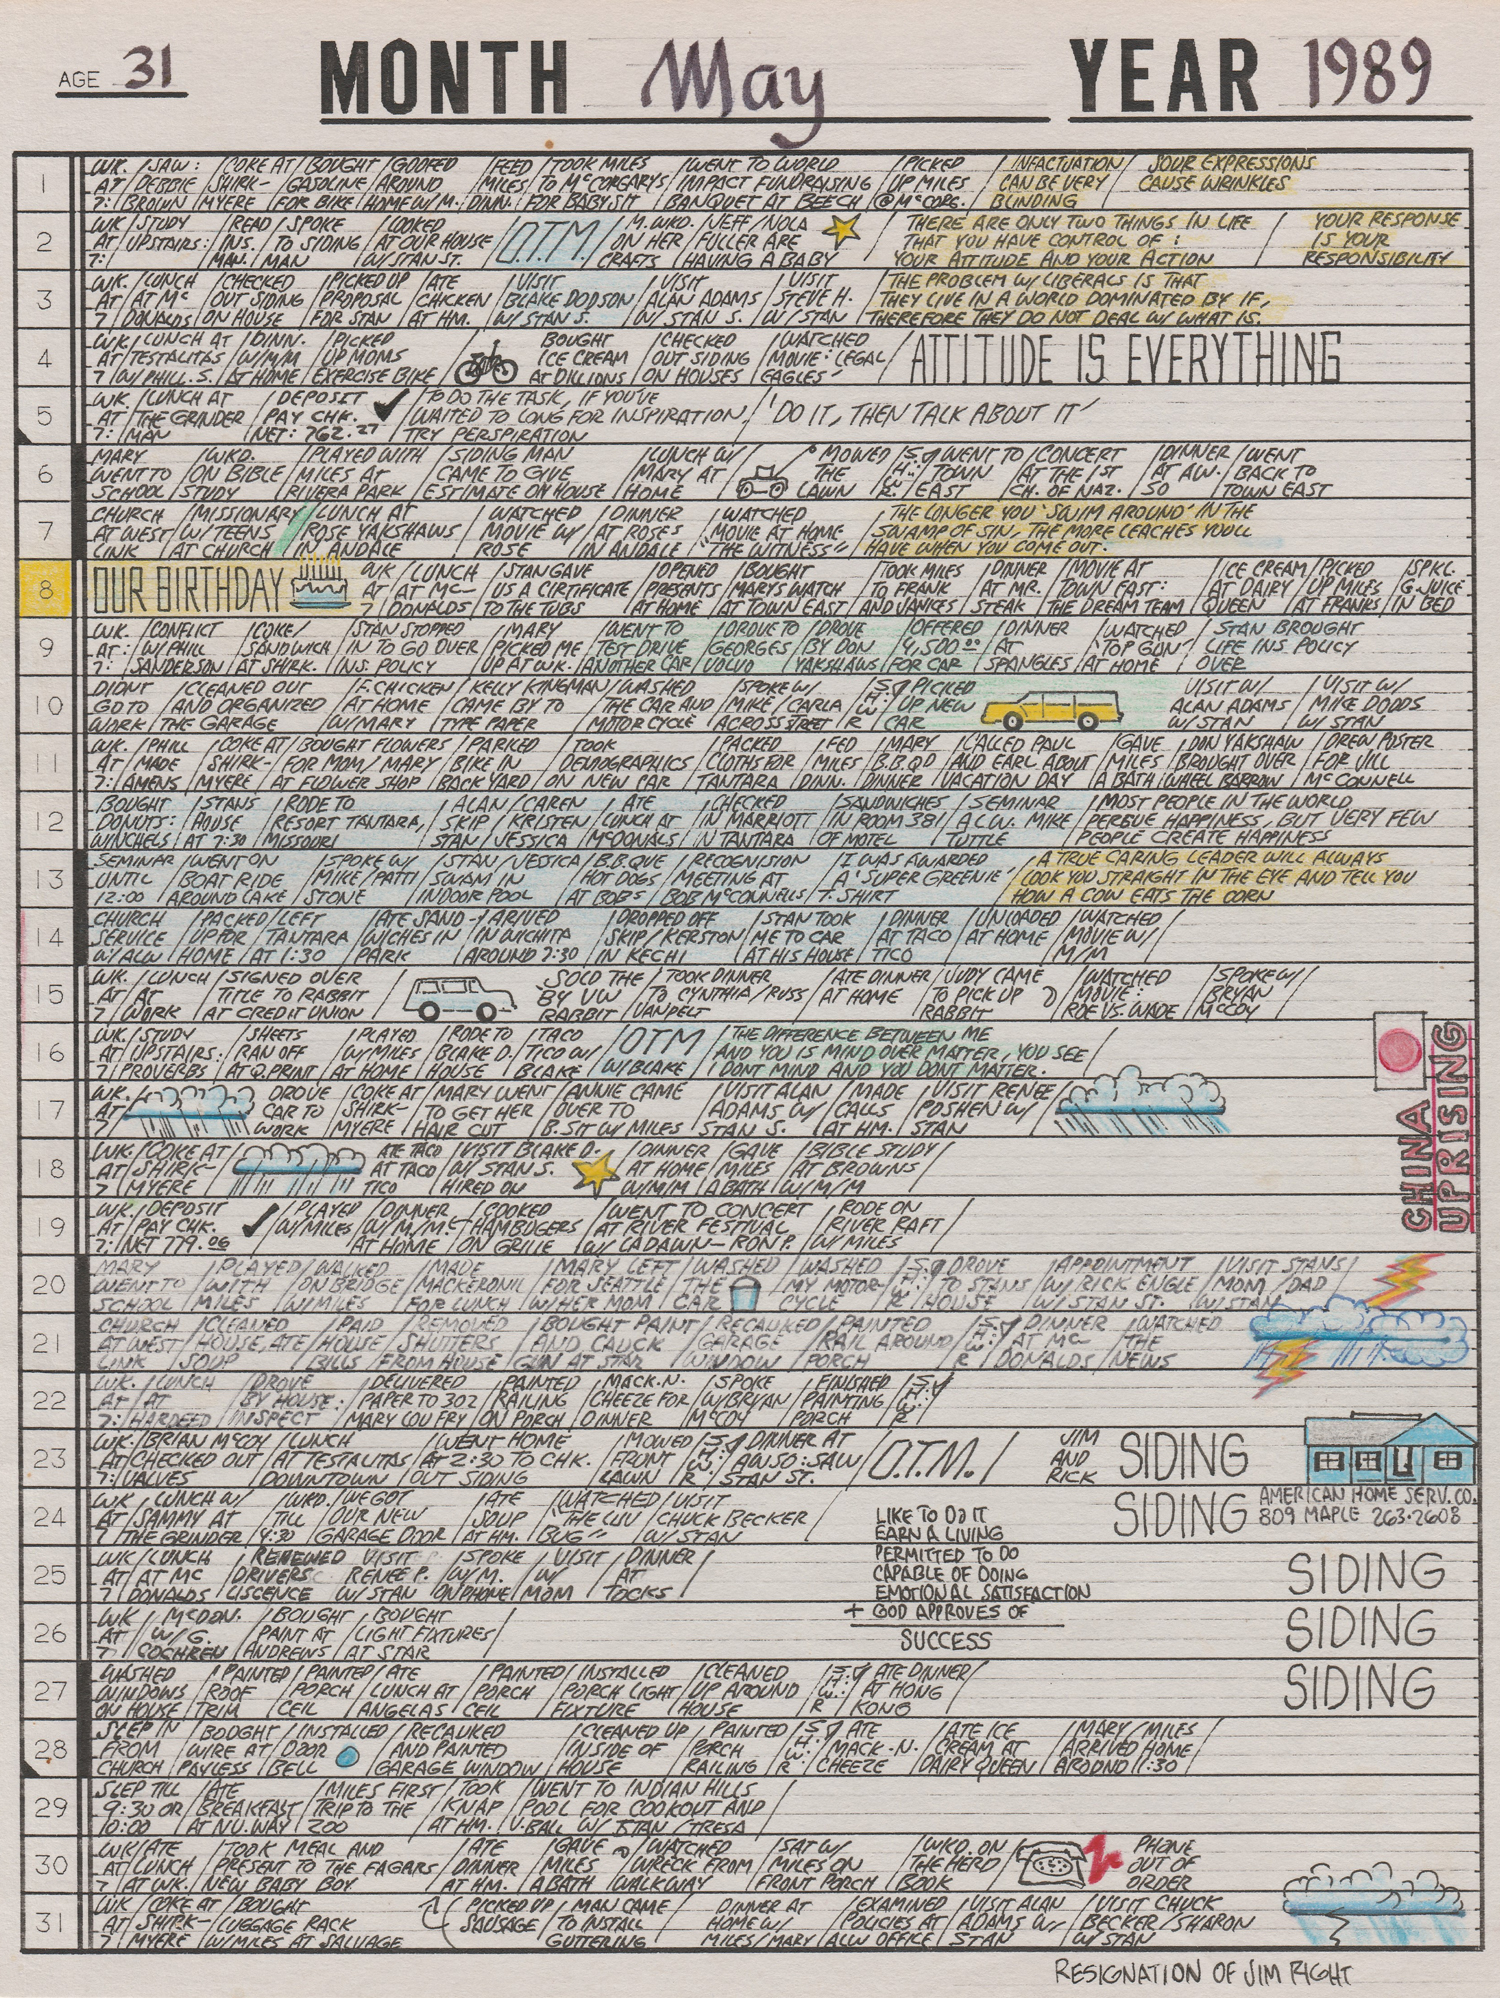 AGE 31 MONTH May YEAR 1989
1
WK. / SAW: / COKE AT / BOUGHT / GOOFED / FEED / TOOK MILES / WENT TO WORLD / PICKED / INFACTUATION / SOUR EXPRESSIONS
AT / DEBBIE / SHIRK- / GASOLINE / AROUND / MILES / TO McCORGARYS / IMPACT FUNDRAISING / UP MILES / CAN BE VERY / CAUSE WRINKLES
7: / BROWN / MYERE / FOR BIKE / HOME W/M. / DINN. / FOR BABYSIT / BANQUET AT BEECH / @ McCORG. / BLINDING
2
WK / STUDY / READ / SPOKE / LOOKED / O.T.M. / M. WKD. / JEFF / NOLA / THERE ARE ONLY TWO THINGS IN LIFE / YOUR RESPONSE
AT / UPSTAIRS: / INS. / TO SIDING / AT OUR HOUSE / ON HER / FULLER ARE / THAT YOU HAVE CONTROL OF: / IS YOUR
7: / MAN. / MAN / W/ STAN ST. / CRAFTS / HAVING A BABY / YOUR ATTITUDE AND YOUR ACTION / RESPONSIBILITY
3
WK. / LUNCH / CHECKED / PICKED UP / ATE / VISIT / VISIT / VISIT / THE PROBLEM W/ LIBERALS IS THAT
AT / AT Mc / OUT SIDING / PROPOSAL / CHICKEN / BLAKE DODSON / ALAN ADAMS / STEVE H. / THEY LIVE IN A WORLD DOMINATED BY IF,
7 / DONALDS / ON HOUSE / FOR STAN / AT HM. / W/ STAN S. / W/ STAN S. / W/ STAN / THEREFORE THEY DO NOT DEAL W/ WHAT IS.
4
WK. / LUNCH AT / DINN. / PICKED / BOUGHT / CHECKED / WATCHED / ATTITUDE IS EVERYTHING
AT / TESTALITAS / W/M/M / UP MOMS / ICE CREAM / OUT SIDING / MOVIE: "LEGAL
7 / W/ PHILL. S. / AT HOME / EXERCISE BIKE / AT DILLIONS / ON HOUSES / EAGLES"
5
WK / LUNCH AT / DEPOSIT / TO DO THE TASK, IF YOU'VE
AT / THE GRINDER / PAY CHK. / WAITED TO LONG FOR INSPIRATION, / 'DO IT, THEN TALK ABOUT IT'
7: / MAN / NET: 762.27 / TRY PERSPIRATION
6
MARY / WKD. / PLAYED WITH / SIDING MAN / LUNCH W/ / MOWED / S / WENT TO / CONCERT / DINNER / WENT
WENT TO / ON BIBLE / MILES AT / CAME TO GIVE / MARY AT / THE / H. W. / TOWN / AT THE 1ST / AT AW. / BACK TO
SCHOOL / STUDY / RIVERA PARK / ESTIMATE ON HOUSE / HOME / LAWN / R. / EAST / CH. OF NAZ. / SO / TOWN EAST
7
CHURCH / MISSIONARY / LUNCH AT / WATCHED / DINNER / WATCHED / THE LONGER YOU 'SWIM AROUND' IN THE
AT WEST / W/ TEENS / ROSE YAKSHAWS / MOVIE W/ / AT ROSES / MOVIE AT HOME / SWAMP OF SIN, THE MORE LEACHES YOU'LL
LINK / AT CHURCH / IN ANDALE / ROSE / IN ANDALE / "THE WITNESS" / HAVE WHEN YOU COME OUT.
8
OUR BIRTHDAY / WK / LUNCH / STAN GAVE / OPENED / BOUGHT / TOOK MILES / DINNER / MOVIE AT / ICE CREAM / PICKED / SPKL.
AT / AT Mc- / US A CIRTIFICATE / PRESENTS / MARYS WATCH / TO FRANK / AT MR. / TOWN EAST: / AT DAIRY / UP MILES / G. JUICE
7 / DONALDS / TO THE TUBS / AT HOME / AT TOWN EAST / AND JANICES / STEAK / THE DREAM TEAM / QUEEN / AT FRANKS / IN BED
9
WK. / CONFLICT / COKE / STAN STOPPED / MARY / WENT TO / DROVE TO / DROVE / OFFERED / DINNER / WATCHED / STAN BROUGHT
AT: / W/ PHILL / SANDWICH / IN TO GO OVER / PICKED ME / TEST DRIVE / GEORGES / BY DON / 4,500.00 / AT / "TOP GUN" / LIFE INS. POLICY
7: / SANDERSON / AT SHIRK. / INS. POLICY / UP AT WK. / ANOTHER CAR / VOLVO / YAKSHAWS / FOR CAR / SPANGLES / AT HOME / OVER
10
DIDNT / CLEANED OUT / F. CHICKEN / KELLY KINGMAN / WASHED / SPOKE W/ / S / PICKED / VISIT W/ / VISIT W/
GO TO / AND ORGANIZED / AT HOME / CAME BY TO / THE CAR AND / MIKE / CARLA / H. W. / UP NEW / ALAN ADAMS / MIKE DODDS
WORK / THE GARAGE / W/ MARY / TYPE PAPER / MOTOR CYCLE / ACROSS STREET / R / CAR / W/ STAN / W/ STAN
11
WK. / PHILL / COKE AT / BOUGHT FLOWERS / PARKED / TOOK / PACKED / FED / MARY / CALLED PAUL / GAVE / DON YAKSHAW / DREW POSTER
AT / MADE / SHIRK- / FOR MOM / MARY / BIKE IN / DEMOGRAPHICS / CLOTHS FOR / MILES / B.B.QD / AND EARL ABOUT / MILES / BROUGHT OVER / FOR VILL
7: / AMENS / MYERE / AT FLOWER SHOP / BACK YARD / ON NEW CAR / TANTARA / DINN. / DINNER / VACATION DAY / A BATH / WHEEL BARROW / McCONNELL
12
BOUGHT / STANS / RODE TO / ALAN / CAREN / ATE / CHECKED / SANDWICHES / SEMINAR / MOST PEOPLE IN THE WORLD
DONUTS: / HOUSE / RESORT TANTARA, / SKIP / KRISTEN / LUNCH AT / IN MARRIOTT / IN ROOM 381 / A.L.W. MIKE / PERSUE HAPPINESS, BUT VERY FEW
WINCHELS / AT 7:30 / MISSOURI / STAN / JESSICA / McDONALS / IN TANTARA / OF MOTEL / TUTTLE / PEOPLE CREATE HAPPINESS
13
SEMINAR / WENT ON / SPOKE W/ / STAN / JESSICA / B.B.QUE / RECOGNISION / I WAS AWARDED / A TRUE CARING LEADER WILL ALWAYS
UNTIL / BOAT RIDE / MIKE / PATTI / SWAM IN / HOT DOGS / MEETING AT / A 'SUPER GREENIE' / LOOK YOU STRAIGHT IN THE EYE AND TELL YOU
12:00 / AROUND LAKE / STONE / INDOOR POOL / AT BOBS / BOB McCONNELLS / T. SHIRT / HOW A COW EATS THE CORN
14
CHURCH / PACKED / LEFT / ATE SAND- / ARIVED / DROPPED OFF / STAN TOOK / DINNER / UNLOADED / WATCHED
SERVICE / UP FOR / TANTARA / WICHES IN / IN WICHITA / SKIP / KERSTON / ME TO CAR / AT TACO / AT HOME / MOVIE W/
W/ ALW / HOME / AT 1:30 / PARK / AROUND 7:30 / IN KECHI / AT HIS HOUSE / TICO / M/M
15
WK. / LUNCH / SIGNED OVER / SOLD THE / TOOK DINNER / ATE DINNER / JUDY CAME / WATCHED / SPOKE W/
AT / AT / TITLE TO RABBIT / BY VW / TO CYNTHIA / RUSS / AT HOME / TO PICK UP / MOVIE: / BRYAN
7 / WORK / AT CREDIT UNION / RABBIT / VANPELT / RABBIT / ROE VS. WADE / McCOY
16
WK. / STUDY / SHEETS / PLAYED / RODE TO / TACO / OTM / THE DIFFERENCE BETWEEN ME
AT / UPSTAIRS: / RAN OFF / W/ MILES / BLAKE D. / TICO W/ / AND YOU IS MIND OVER MATTER, YOU SEE
7 / PROVERBS / AT Q.PRINT / AT HOME / HOUSE / BLAKE / W/ BLAKE / I DONT MIND AND YOU DONT MATTER.
CHINA UPRISING
17
WK. / DROVE / COKE AT / MARY WENT / ANNIE CAME / VISIT ALAN / MADE / VISIT RENEE
AT / CAR TO / SHIRK- / TO GET HER / OVER TO / ADAMS W/ / CALLS / POSHEN W/
7 / WORK / MYERE / HAIR CUT / B. SIT W/ MILES / STAN S. / AT HM. / STAN
18
WK. / COKE AT / ATE TACO / VISIT BLAKE D. / DINNER / GAVE / BIBLE STUDY
AT / SHIRK- / AT TACO / W/ STAN S. / AT HOME / MILES / AT BROWNS
7 / MYERE / TICO / HIRED ON / W/M/M / A BATH / W/M/M
19
WK. / DEPOSIT / PLAYED / DINNER / COOKED / WENT TO CONCERT / RODE ON
AT / PAY CHK. / W/ MILES / W/M/M. / HAMBUGERS / AT RIVER FESTIVAL / RIVER RAFT
7: / NET 779.06 / AT HOME / ON GRILLE / W/ LADAWN- RON P. / W/ MILES
20
MARY / PLAYED / WALKED / MADE / MARY LEFT / WASHED / WASHED / S / DROVE / APPOINTMENT / VISIT STANS
WENT TO / WITH / ON BRIDGE / MACKERONII / FOR SEATTLE / THE / MY MOTOR- / H. W. / TO STANS / W/ RICK ENGLE / MOM / DAD
SCHOOL / MILES / W/ MILES / FOR LUNCH / W/ HER MOM / CAR / CYCLE / R / HOUSE / W/ STAN ST. / W/ STAN
21
CHURCH / CLEANED / PAID / REMOVED / BOUGHT PAINT / RECAUKED / PAINTED / S / DINNER / WATCHED
AT WEST / HOUSE, ATE / HOUSE / SHUTTERS / AND CAUCK / GARAGE / RAIL AROUND / H. W. / AT Mc / THE
LINK / SOUP / BILLS / FROM HOUSE / GUN AT STAR / WINDOW / PORCH / R / DONALDS / NEWS
22
WK. / LUNCH / DROVE / DELIVERED / PAINTED / MACK.N. / SPOKE / FINISHED / S
AT / AT / BY HOUSE: / PAPER TO 302 / RAILING / CHEEZE FOR / W/ BRYAN / PAINTING / H. W.
7: / HARDEED / INSPECT / MARY LOU FRY / ON PORCH / DINNER / McCOY / PORCH / R
23
WK. / BRIAN McCOY / LUNCH / WENT HOME / MOWED / S / DINNER AT / O.T.M. / JIM / SIDING
AT / CHECKED OUT / AT TESTALITAS / AT 2:30 TO CHK. / FRONT / H. W. / AW SO: SAW / AND
7: / VALVES / DOWNTOWN / OUT SIDING / LAWN / R / STAN ST. / RICK
24
WK / LUNCH W/ / WKD. / WE GOT / ATE / WATCHED / VISIT / SIDING AMERICAN HOME SERV. CO.
AT / SAMMY AT / TILL / OUR NEW / SOUP / "THE LUV / CHUCK BECKER / 809 MAPLE 263-2608
7 / THE GRINDER / 4:30 / GARAGE DOOR / AT HM. / BUG" / W/ STAN
LIKE TO DO IT
EARN A LIVING
PERMITTED TO DO
CAPABLE OF DOING
EMOTIONAL SATISFACTION
+ GOD APPROVES OF
SUCCESS
25
WK / LUNCH / RENEWED / VISIT / SPOKE / VISIT / DINNER / SIDING
AT / AT Mc / DRIVERS / RENEE P. / W/M. / W/ / AT
7 / DONALDS / LISCENCE / W/ STAN / ON PHONE / MOM / TOCKS
26
WK / McDON. / BOUGHT / BOUGHT / SIDING
AT / W/ G. / PAINT AT / LIGHT FIXTURES
7 / COCHREN / ANDREWS / AT STAR
27
WASHED / PAINTED / PAINTED / ATE / PAINTED / INSTALLED / CLEANED / S / ATE DINNER / SIDING
WINDOWS / ROOF / PORCH / LUNCH AT / PORCH / PORCH LIGHT / UP AROUND / H. W. / AT HONG
ON HOUSE / TRIM / CEIL / ANGELAS / CEIL / FIXTURE / HOUSE / R / KONG
28
SLEP IN / BOUGHT / INSTALLED / RECAUKED / CLEANED UP / PAINTED / S / ATE / ATE ICE / MARY / MILES
FROM / WIRE AT / DOOR / AND PAINTED / INSIDE OF / PORCH / H. W. / MACK-N. / CREAM AT / ARRIVED HOME
CHURCH / PAYLESS / BELL / GARAGE WINDOW / HOUSE / RAILING / R / CHEEZE / DAIRY QUEEN / AROUND 11:30
29
SLEP TILL / ATE / MILES FIRST / TOOK / WENT TO INDIAN HILLS
9:30 OR / BREAKFAST / TRIP TO THE / KNAP / POOL FOR COOKOUT AND
10:00 / AT NU. WAY / ZOO / AT HM. / V. BALL W/ STAN / TRESA
30
WK / ATE / TOOK MEAL AND / ATE / GAVE / WATCHED / SAT W/ / WKD. ON / PHONE
AT / LUNCH / PRESENT TO THE FAGARS / DINNER / MILES / WRECK FROM / MILES ON / THE HERO / OUT OF
7 / AT WK. / NEW BABY BOY / AT HM. / A BATH / WALKWAY / FRONT PORCH / BOOK / ORDER
31
WK / COKE AT / BOUGHT / PICKED UP / MAN CAME / DINNER AT / EXAMINED / VISIT ALAN / VISIT CHUCK
AT / SHIRK- / LUGGAGE RACK / SAUSAGE / TO INSTALL / HOME W/ / POLICIES AT / ADAMS W/ / BECKER / SHARON
7 / MYERE / W/ MILES AT SALVAGE / GUTTERING / MILES / MARY / ALW OFFICE / STAN / W/ STAN
RESIGNATION OF JIM RIGHT